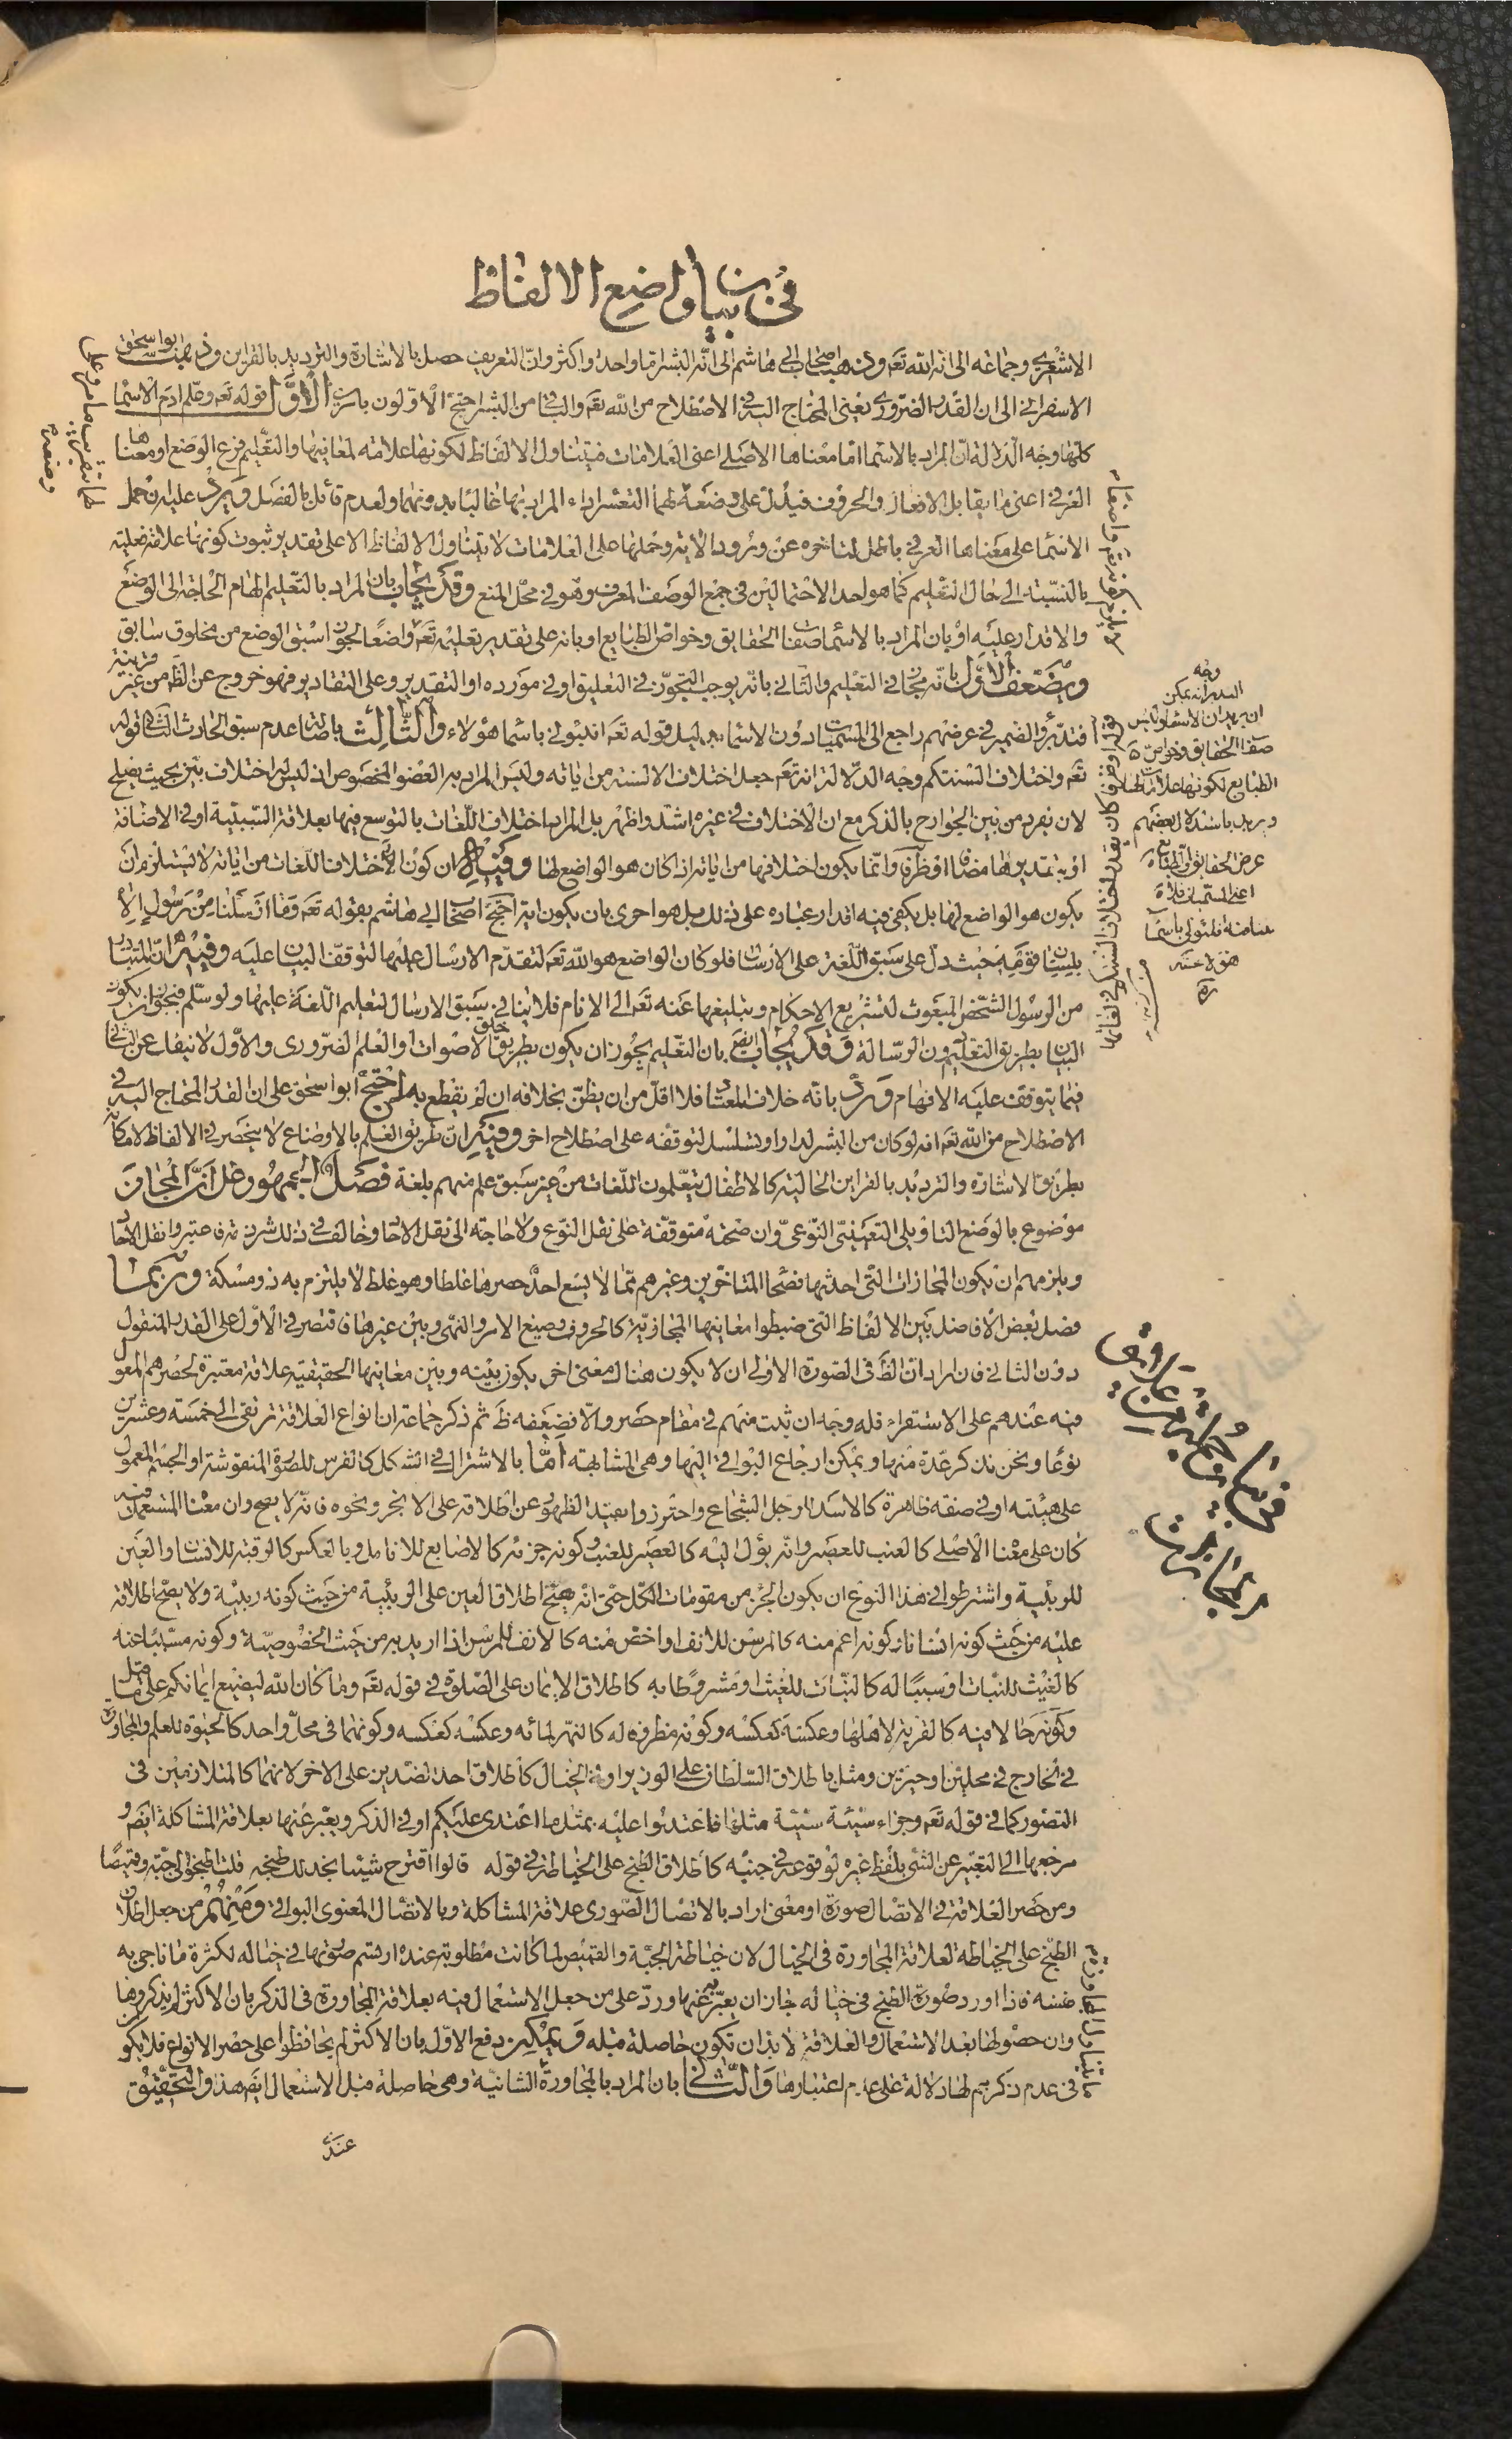 في بيان واضع الالفاظ
الاشعري وجماعة الى انه الله تعه وذهب اصحاب ابي هاشم الى انه البشر اما واحد او اكثر وان التعريف حصل بالاشارة والترديد بالقراين وذهب ابو اسحق
الاسفرايني الى ان القدر الضروري يعني المحتاج اليه في الاصطلاح من الله تعه والباقي من البشر احتج الاولون بامرين الاول قوله تعه وعلم ادم الاسماء
كلها وجه الدلالة ان المراد بالاسماء اما معناها الاصلي اعني العلامات فيتناول الالفاظ لكونها علامة لمعانيها والتعليم فرع الوضع او معناها
العرفي اعني ما يقابل الافعال والحروف فيدل على وضعه لهما لتعسر اداء المراد بها غالبا بدونهما ولعدم قائل بالفصل ويرد عليه ان حمل
الاسماء على معناها العرفي باطل لتاخره عن ورود الاية وحملها على العلامات لا يتناول الالفاظ الا على تقدير ثبوت كونها علامة فعلية
بالنسبة الى حال التعليم كما هو احد الاحتمالين في جمع الوصف المعرف وهو في محل المنع وقد يجاب بان المراد بالتعليم الهام الحاجة الى الوضع
والاقدار عليه او بان المراد بالاسماء صفات الحقايق وخواص الطبايع او بانه على تقدير تعليمه تعه واضعا لجواز سبق الوضع من مخلوق سابق
ويضعف الاول بانه مجاز في التعليم والثاني بانه يوجب التجوز في التعليق او في مورده او التقدير وعلى التقادير فهو خروج عن الظ من غير قرينة
فتدبر والضمير في عرضهم راجع الى المسميات دون الاسماء بدليل قوله تعه انبئوني باسماء هؤلاء والثالث باصالة عدم سبق الحادث الثاني قوله
تعه واختلاف السنتكم وجه الدلالة انه تعه جعل اختلاف الالسنة من اياته وليس المراد به العضو المخصوص اذ ليس له اختلاف بين بحيث يصلح
لان يفرد من بين الجوارح بالذكر مع ان الاختلاف في غيره اشد واظهر بل المراد اختلاف اللغات بالتوسع فيها بعلاقة السببية او في الاضافة
او بتقديرها مضافا او ظرفا وانما يكون اختلافها من اياته اذا كان هو الواضع لها وفيه ان كون الاختلاف اللغات من اياته لا يستلزم ان
يكون هو الواضع لها بل يكفي فيه اقدار عباده على ذلك بل هو احرى بان يكون اية احتج اصحاب ابي هاشم بقوله تعه وما ارسلنا من رسول الا
بلسان قومه حيث دل على سبق اللغة على الارسال فلو كان الواضع هو الله تعه لتقدم الارسال عليها لتوقف البيان عليه وفيه ان المتبادر
من الرسول الشخص المبعوث لتشريع الاحكام وتبليغها عنه تعه الى الانام فلا ينافي سبق الارسال لتعليم اللغة عليها ولو سلم فيجوز ان يكون
البيان بطريق التعليم دون الرسالة وقد يجاب ايضه بان التعليم يجوز ان يكون بطريق خلق الاصوات او العلم الضروري والاول لا ينفك عن الثاني
فيما يتوقف عليه الافهام ورد بانه خلاف المعتاد فلا اقل من ان يظن بخلافه ان لم يقطع به احتج ابو اسحق على ان القدر المحتاج اليه في
الاصطلاح من الله تعه انه لو كان من البشر لدار او تسلسل لتوقفه على اصطلاح اخر وفيه ان طريق العلم بالاوضاع لا ينحصر في الالفاظ لامكانه
بطريق الاشارة والترديد بالقراين الحالية كالاطفال يتعلمون اللغات من غير سبق علم منهم بلغة فصل الجمهور على ان المجاز
موضوع بالوضع التاويلي التعييني النوعي وان صحته متوقفة على نقل النوع ولا حاجة الى نقل الاحاد وخالف في ذلك شرذمة فاعتبروا نقل الاحاد
ويلزمهم ان يكون المجازات التي احدثها فصحاء المتاخرين وغيرهم مما لا يسع احد حصرها غلطا وهو غلط لا يلتزم به ذو مسكة وربما
فصل بعض الافاضل بين الالفاظ التي ضبطوا معانيها المجازية كالحروف وصيغ الامر والنهي وبين غيرها فاقتصر في الاول على القدر المنقول
دون الثاني فان اراد ان الظ في الصورة الاولى ان لا يكون هناك معنى اخر يكون بينه وبين معانيها الحقيقية علاقة معتبرة لحصرهم المعول
فيه عندهم على الاستقراء فله وجه ان ثبت منهم في مقام حصر والا فضعفه ظ ثم ذكر جماعة ان انواع العلاقة ترتقي الى خمسة وعشرين
نوعا ونحن نذكر عدة منها ويمكن ارجاع البواقي اليها وهي المشابهة اما بالاشتراك في الشكل كالفرس للصورة المنقوشة او الجسم المعمول
على هيئته او في صفة ظاهرة كالاسد للرجل الشجاع واحترزوا بقيد الظهور عن اطلاقه على الابخر ونحوه فانه لا يصح وان معناه المستعمل فيه
كان على معناه الاصلي كالعنب للعصير وانه يؤل اليه كالعصير للعنب وكونه جزئه كالاصابع للانامل وبالعكس كالرقبة للانسان والعين
للربيئة واشترطوا في هذا النوع ان يكون الجزء من مقومات الكل حتى انه يصح اطلاق العين على الربيئة من حيث كونه ربيئة ولا يصح اطلاقه
عليه من حيث كونه انسانا وكونه اعم منه كالمرسن للانف او اخص منه كالانف للمرسن اذا اريد به من حيث الخصوصية وكونه مسببا عنه
كالغيث للنبات او سببا له كالنبات للغيث او مشروطا به كاطلاق الايمان على الصلوة في قوله تعه وما كان الله ليضيع ايمانكم على ما قيل
وكونه حالا فيه كالقرية لاهلها وعكسه كعكسه وكونه مظروفه له كالنهر لمائه وعكسه كعكسه وكونهما في محل واحد كالحيوة للعلم والمجاورة
في الخارج في محلين او حيزين ومثل باطلاق السلطان على الوزير او في الخيال كاطلاق احد الضدين على الاخر لانهما كالمتلازمين في
التصور كما في قوله تعه وجزاء سيئة سيئة مثلها فاعتدوا عليه بمثل ما اعتدى عليكم او في الذكر ويعبر عنها بعلاقة المشاكلة ايضه و
مرجعها الى التعبير عن الشئ بلفظ غيره لوقوعه في جنبه كاطلاق الطبخ على الخياطة في قوله قالوا اقترح شيئا نجد لك طبخه قلت اطبخوا لي جبة وقميصا
ومن حصر العلاقة في الاتصال صورة او معنى اراد بالاتصال الصوري علاقة المشاكلة وبالاتصال المعنوي البواقي ومنهم من جعل اطلاق
الطبخ على الخياطة لعلاقة المجاورة في الخيال لان خياطة الجبة والقميص لما كانت مطلوبة عنده ارتسم صورتها في خياله لكثرة ما ناجى به
نفسه فاذا اورد صورة الطبخ في خياله جاز ان يعبر به عنها ورد على من جعل الاستعمال فيه بعلاقة المجاورة في الذكر بان الاكثر لم يذكروها
وان حصولها بعد الاستعمال والعلاقة لا بد ان تكون حاصلة قبله ويمكن دفع الاول بان الاكثر لم يحافظوا على حصر الانواع فلا يكون
في عدم ذكرهم لها دلالة على عدم اعتبارها والثاني بان المراد بالمجاورة الشانية وهي حاصلة قبل الاستعمال ايضه هذا والتحقيق
عند
وجه
التدبر انه يمكن
ان يريد ان الاسماء
صفات الحقايق وخواص
الطبايع لكونها علامات لها
ويريد باستدلال بعضهم
عرض الحقايق والطبايع
اعني المسميات
فانبئوني باسماء
هؤلاء